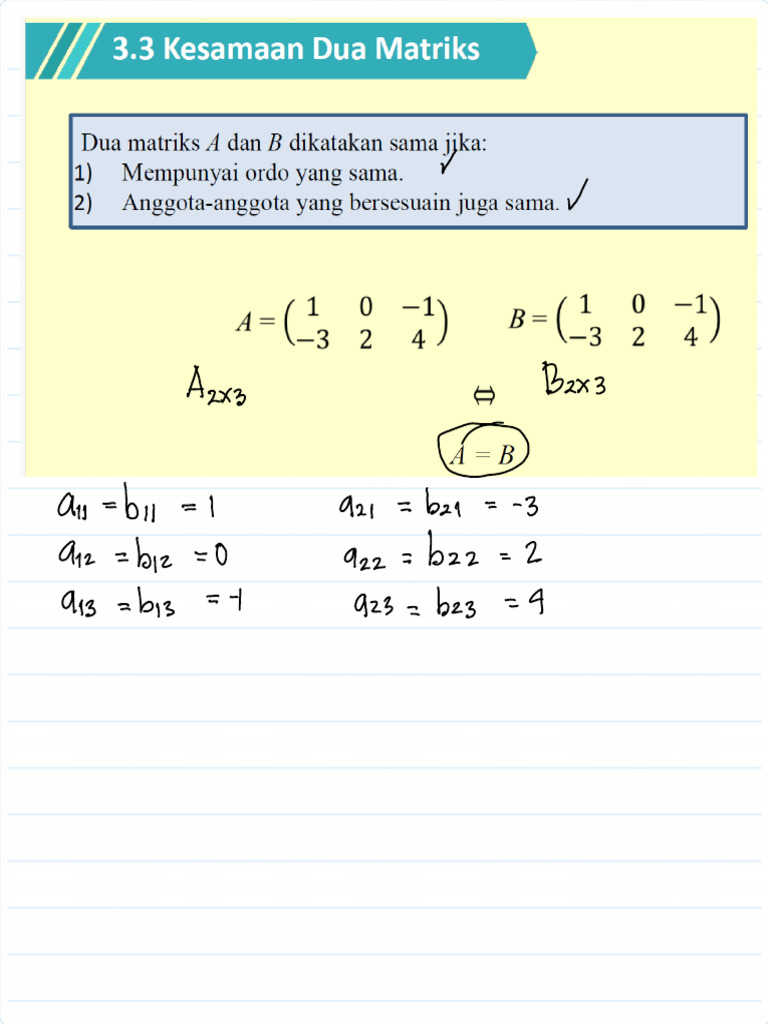 3.3 Kesamaan Dua Matriks
Dua matriks A dan B dikatakan sama jika:
1) Mempunyai ordo yang sama. ✓
2) Anggota-anggota yang bersesuain juga sama. ✓
A = ( 1 0 −1 ) B = ( 1 0 −1 )
( −3 2 4 ) ( −3 2 4 )
A2×3 ⇔ B2×3
A = B
a11 = b11 = 1 a21 = b21 = -3
a12 = b12 = 0 a22 = b22 = 2
a13 = b13 = -1 a23 = b23 = 4